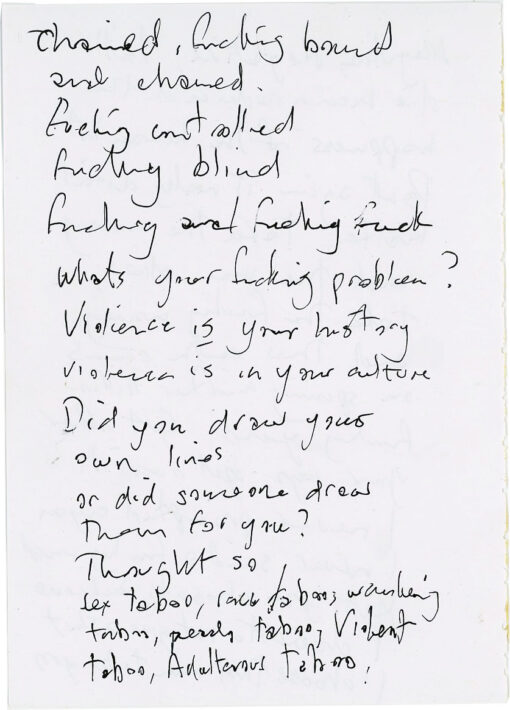 chained, fucking bound
and chained.
fucking controlled
fucking blind
fucking and fucking fuck
whats your fucking problem?
Violence is your history
violence is in your culture
Did you draw your
own lines
or did someone draw
them for you?
Thought so,
sex taboo, race taboo,
taboo, taboo, Violent
taboo, Adulterous taboo,